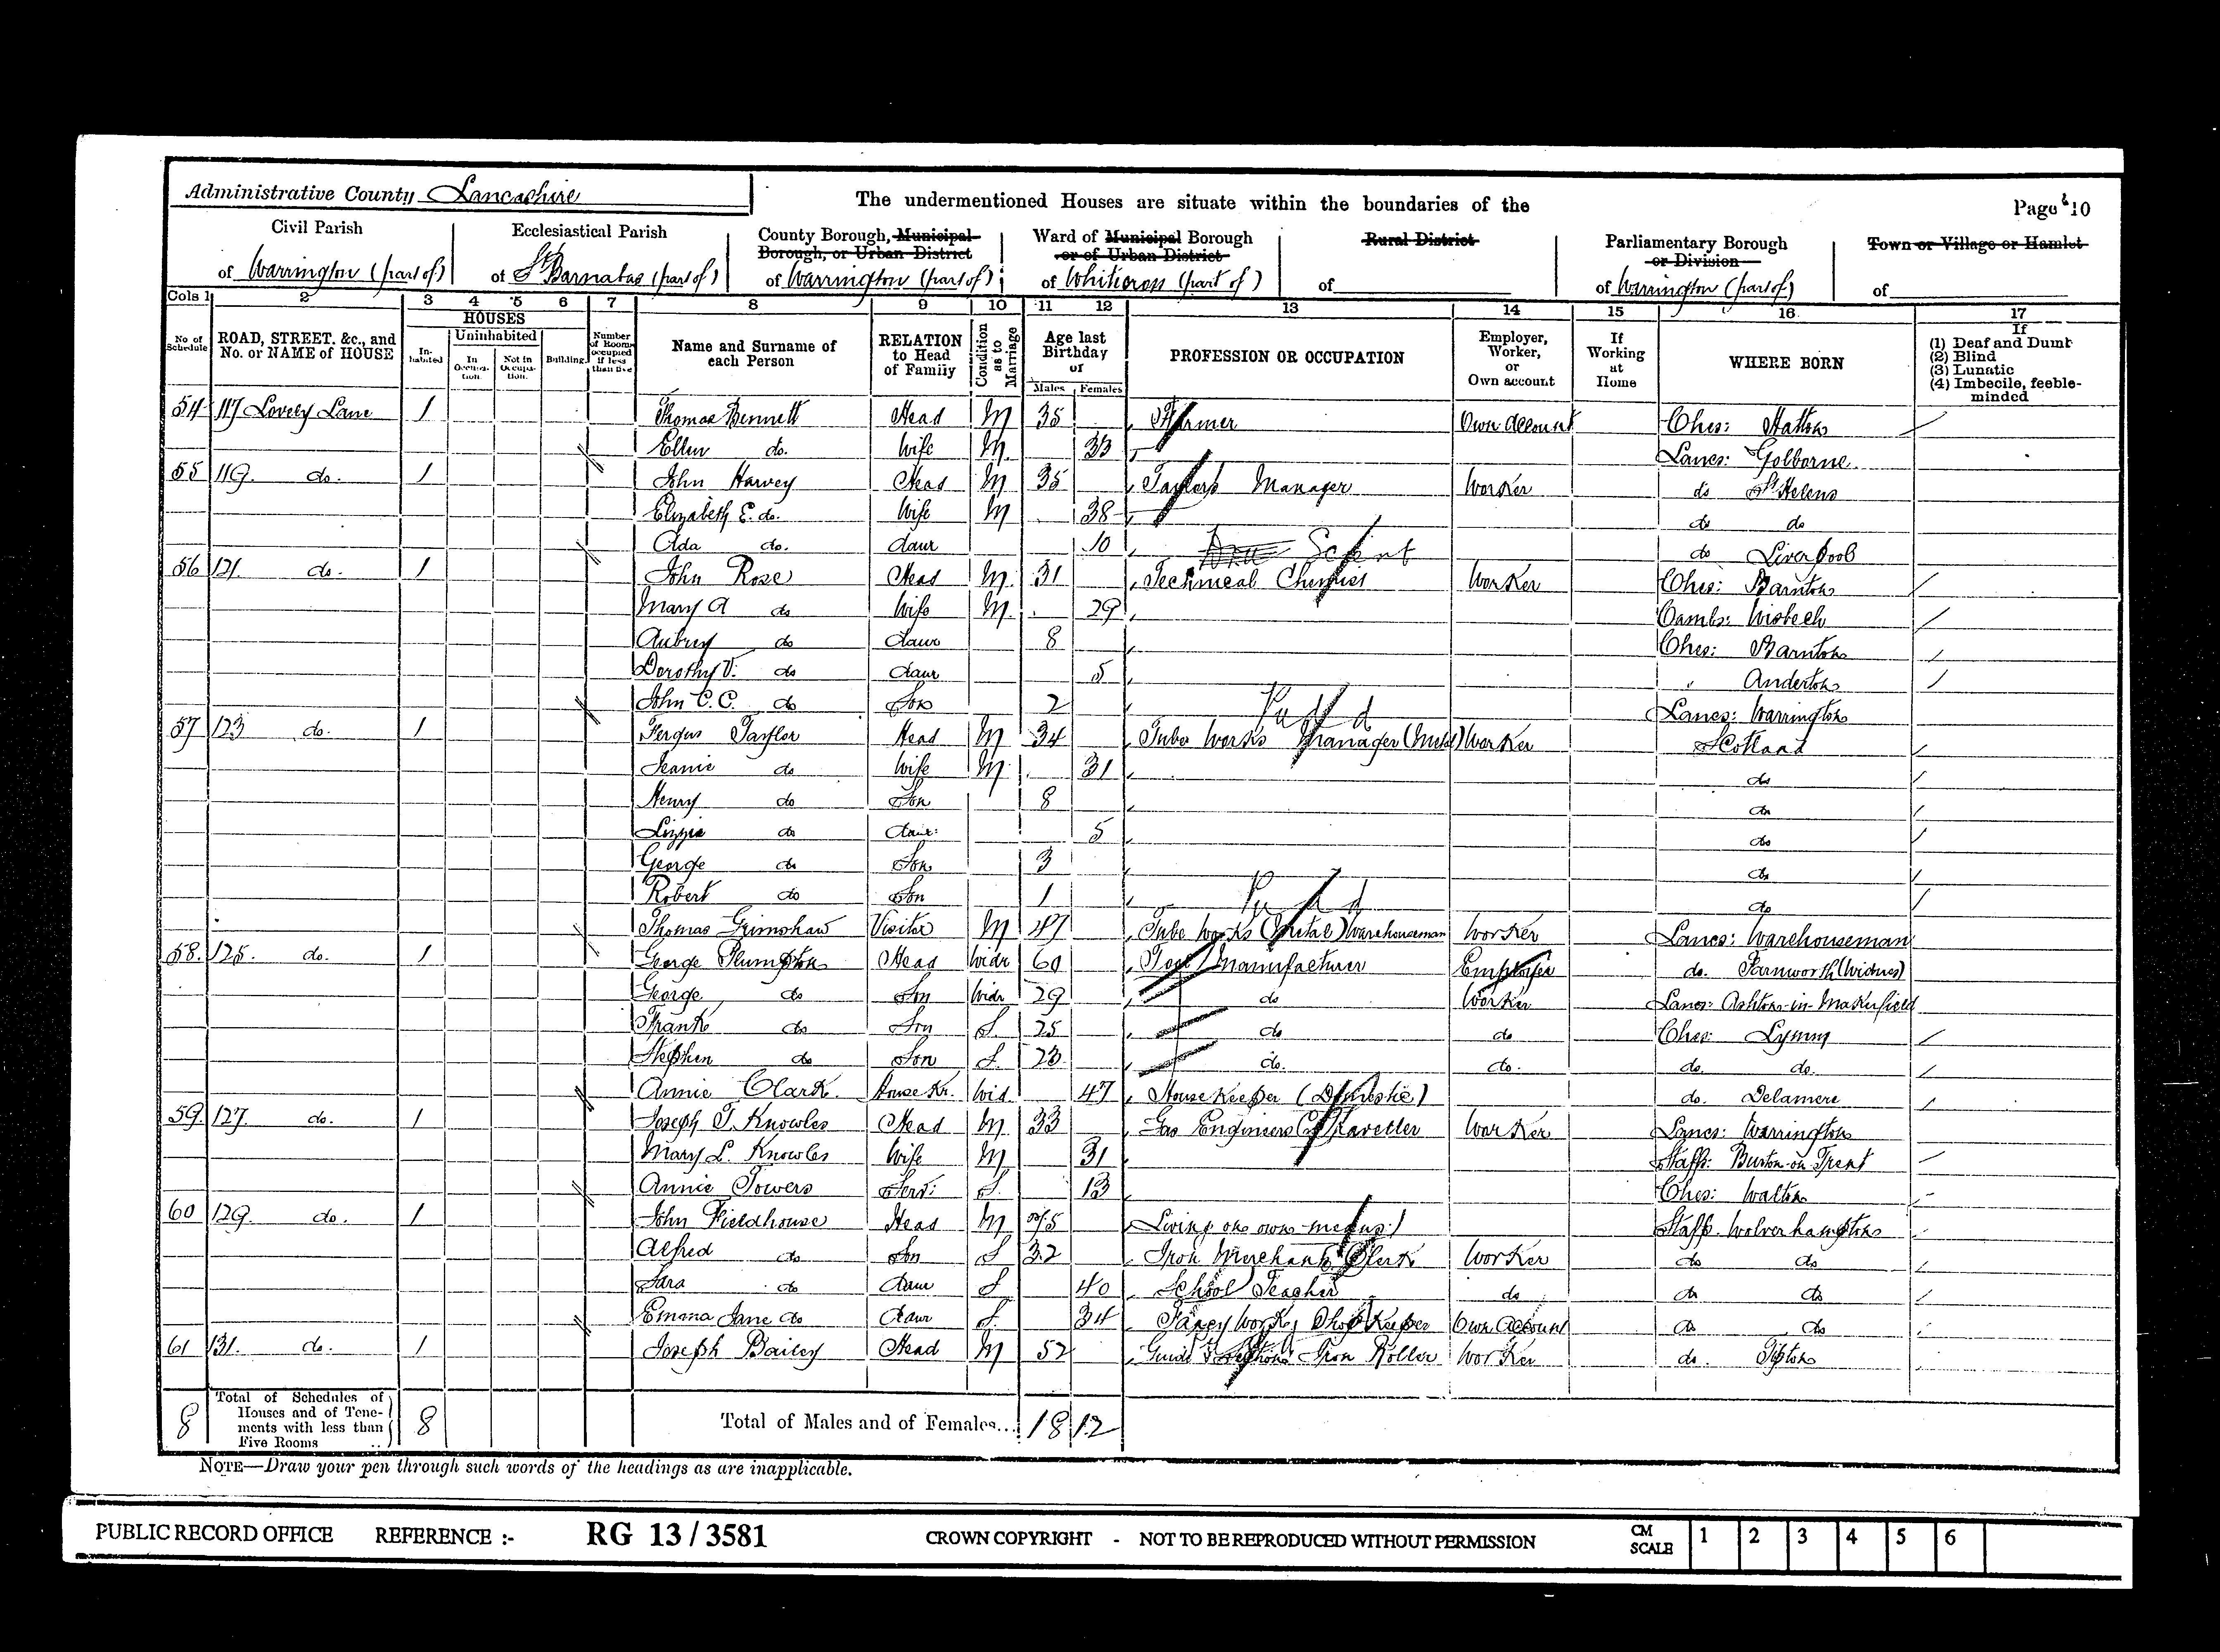 Administrative County Lancashire
The undermentioned Houses are situate within the boundaries of the
Page 10
Civil Parish
of Warrington (part of)
Ecclesiastical Parish
of St Barnabas (part of)
County Borough, Municipal Borough, or Urban District
of Warrington (part of)
Ward of Municipal Borough or of Urban District
of Whitecross (part of)
Rural District
of
Parliamentary Borough or Division
of Warrington (part of)
Town or Village or Hamlet
of
Cols 1 2 3 4 5 6 7 8 9 10 11 12 13 14 15 16 17
No. of Schedule
ROAD, STREET, &c., and No. or NAME of HOUSE
HOUSES
Inhabited
Uninhabited
In Occupation.
Not in Occupation.
Building.
Number of Rooms occupied if less than five
Name and Surname of each Person
RELATION to Head of Family
Condition as to Marriage
Age last Birthday of
Males Females
PROFESSION OR OCCUPATION
Employer, Worker, or Own account
If Working at Home
WHERE BORN
If
(1) Deaf and Dumb
(2) Blind
(3) Lunatic
(4) Imbecile, feeble-minded
54 117 Lovely Lane 1 Thomas Bennett Head M 35 Farmer Own Account Ches: Hatton
Ellen do. Wife M. 33 Lancs: Golborne
55 119. do. 1 John Harvey Head M 35 Taylor's Manager Worker do St Helens
Elizabeth E. do. Wife M 38 do do
Ada do. daur 10 do Liverpool
56 121. do. 1 John Rose Head M. 31 Technical Chemist Worker Ches: Barnton
Mary A do Wife M. 29 Cambs: Wisbech
Aubrey do daur 8 Ches: Barnton
Dorothy V. do daur 5 " Anderton
John C. C. do Son 2 Lancs: Warrington
57 123 do. 1 Fergus Taylor Head M 34 Tube Works Manager (Metal) Worker Scotland
Jeanie do Wife M. 31 do
Henry do Son 8 do
Lizzie do daur: 5 do
George do Son 3 do
Robert do Son 1 do
Thomas Grimshaw Visitor M 47 Tube Works (Metal) Warehouseman Worker Lancs: Warehouseman
58. 125. do. 1 George Plumpton Head Widr 60 Tool Manufacturer Employer do. Farnworth (Widnes)
George do Son Widr 29 do Worker Lancs: Ashton-in-Makerfield
Frank do Son S. 25 do do Ches: Lymm
Stephen do Son S. 23. do. do. do. do.
Annie Clark. House Kr. Wid. 47 House Keeper (Domestic) do. Delamere
59. 127. do. 1 Joseph T. Knowles Head M. 33 Gas Engineers Traveller Worker Lancs: Warrington
Mary L. Knowles Wife M 31 Staffs: Burton-on-Trent
Annie Towers Serv: S. 13 Ches: Walton
60 129. do. 1 John Fieldhouse Head M 75 Living on own means Staffs. Wolverhampton
Alfred do Son S 32 Iron Merchants Clerk Worker do do
Sara do daur S 40 School Teacher do do do
Emma Jane do daur S. 34 Fancy Work, Shop Keeper Own Account do do
61 131. do. 1 Joseph Bailey Head M 52 Guide Iron Roller Worker do. Tipton
8 Total of Schedules of Houses and of Tenements with less than Five Rooms 8 Total of Males and of Females... 18 12
NOTE—Draw your pen through such words of the headings as are inapplicable.
PUBLIC RECORD OFFICE REFERENCE :- RG 13 / 3581 CROWN COPYRIGHT - NOT TO BE REPRODUCED WITHOUT PERMISSION CM SCALE 1 2 3 4 5 6